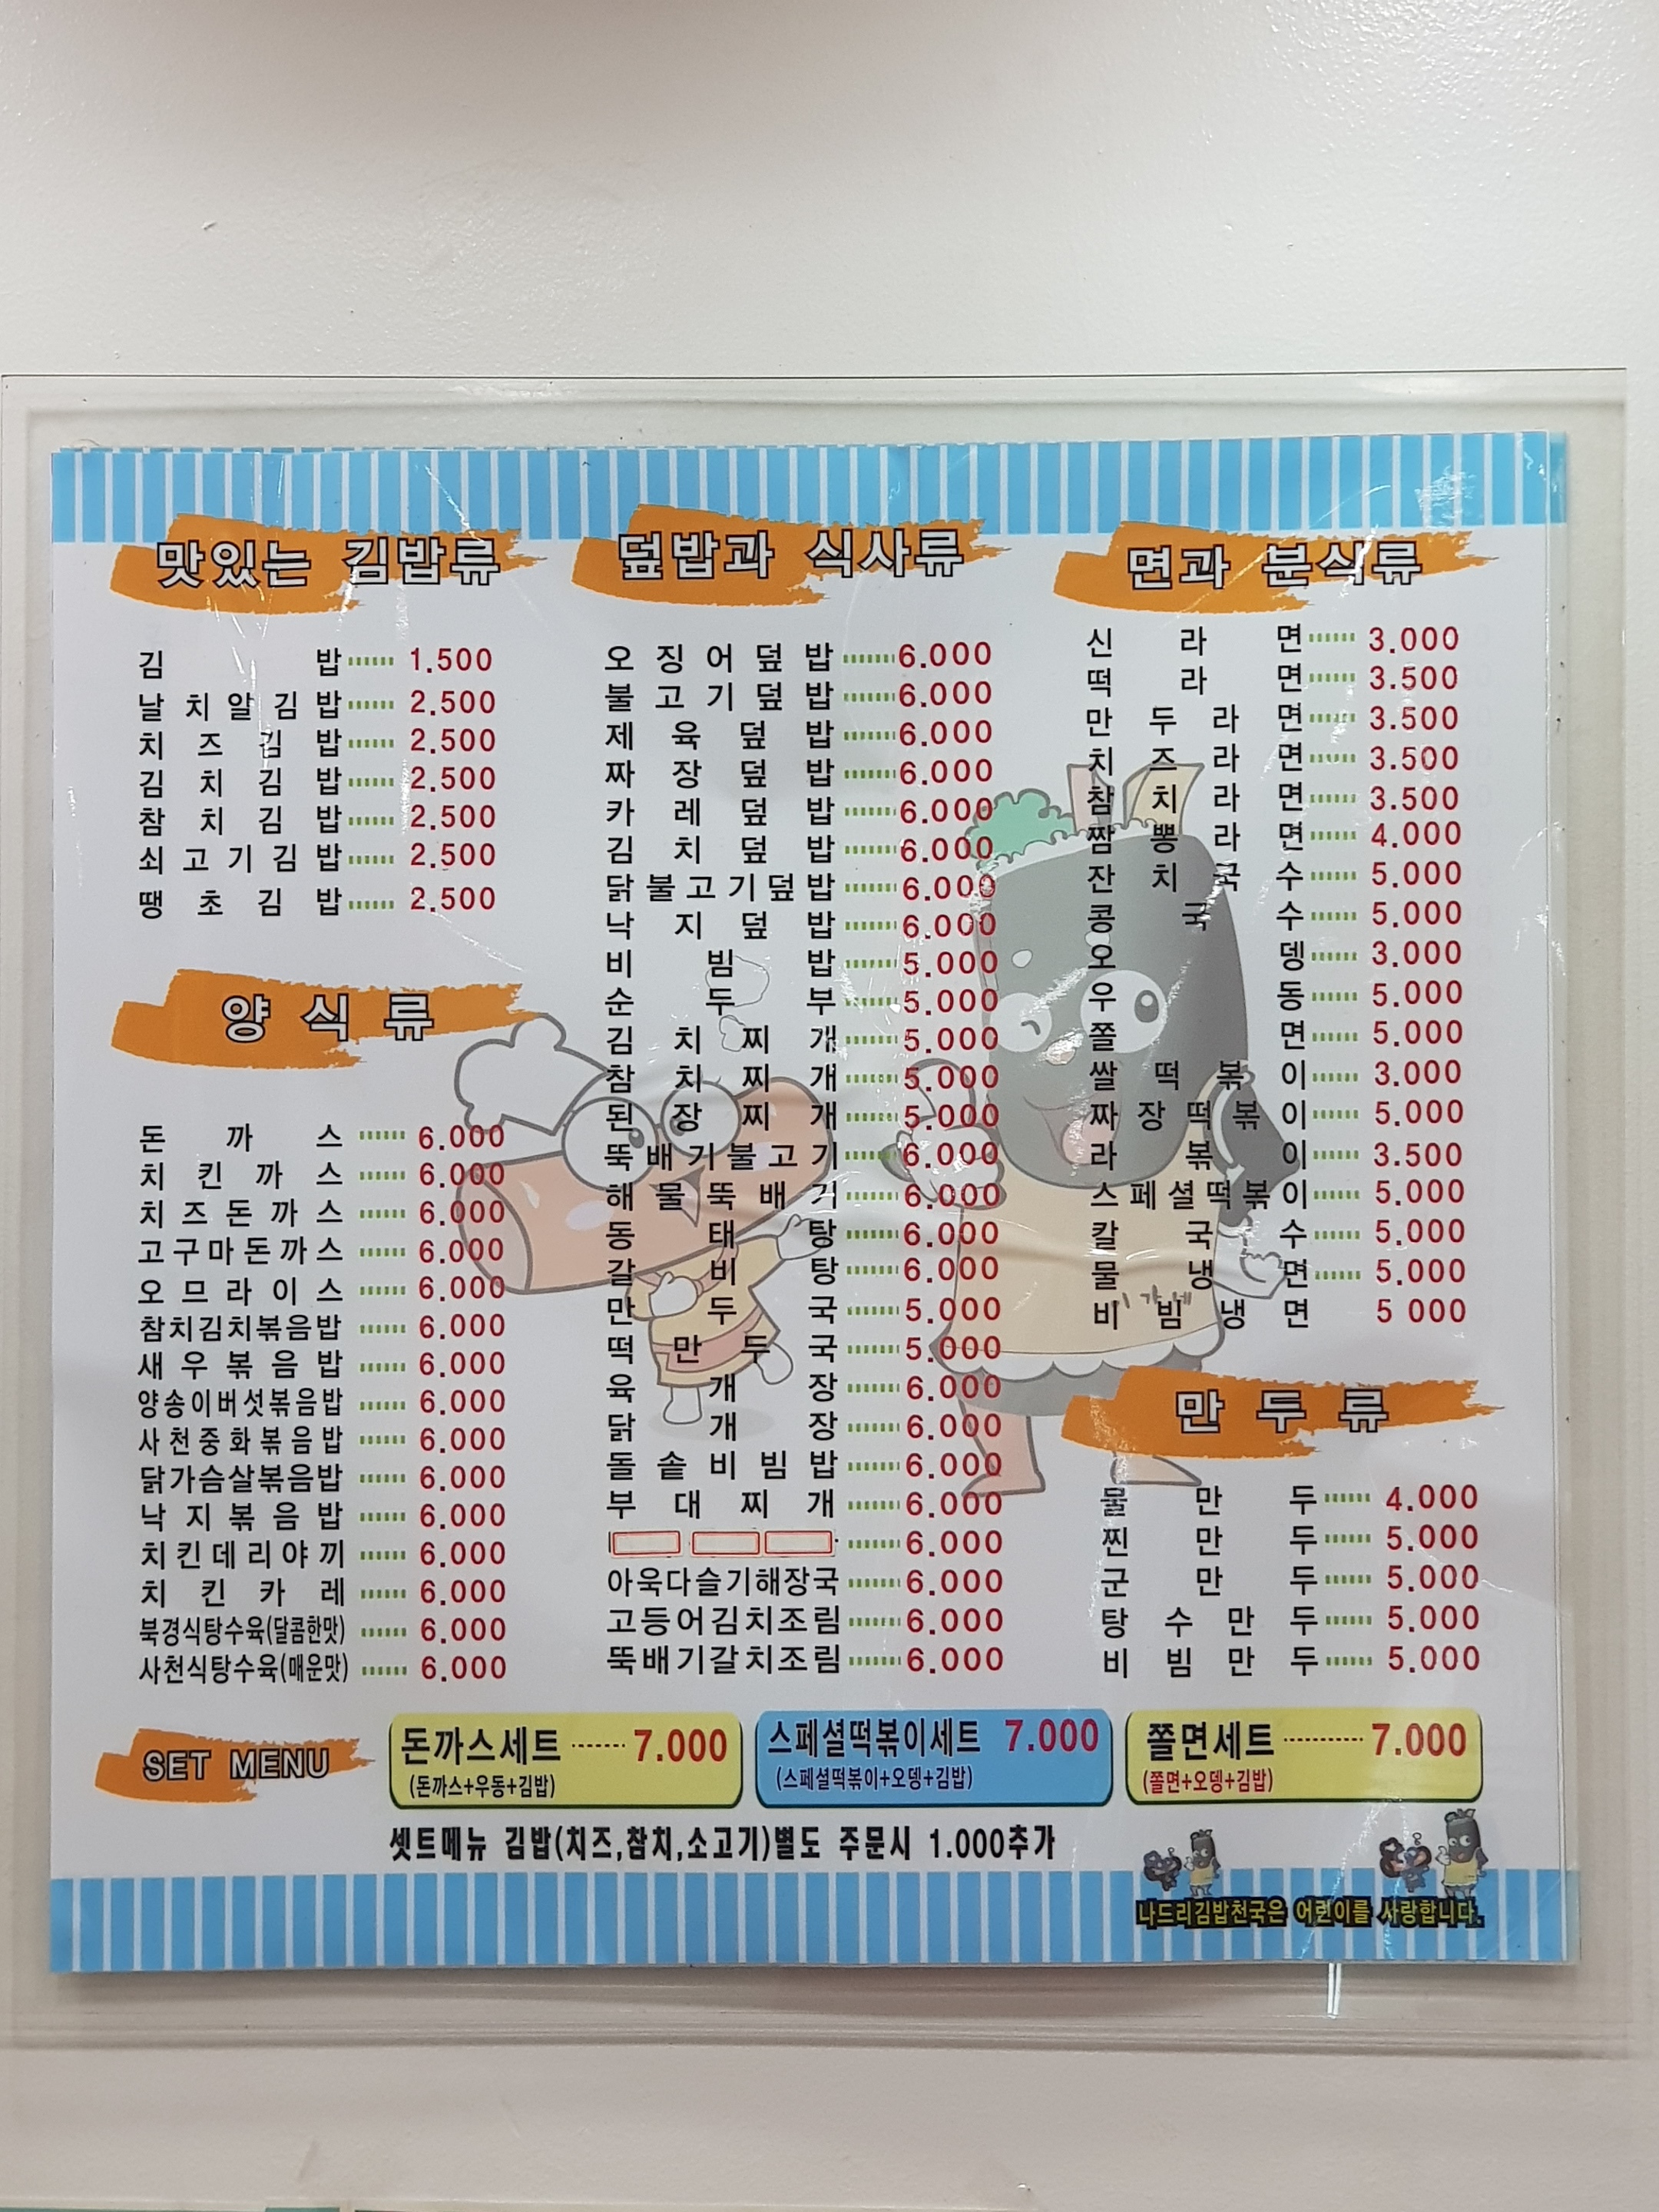 맛있는 김밥류
김밥 1.500
날치알김밥 2.500
치즈김밥 2.500
김치김밥 2.500
참치김밥 2.500
쇠고기김밥 2.500
땡초김밥 2.500
양식류
돈까스 6.000
치킨까스 6.000
치즈돈까스 6.000
고구마돈까스 6.000
오므라이스 6.000
참치김치볶음밥 6.000
새우볶음밥 6.000
양송이버섯볶음밥 6.000
사천중화볶음밥 6.000
닭가슴살볶음밥 6.000
낙지볶음밥 6.000
치킨데리야끼 6.000
치킨카레 6.000
북경식탕수육(달콤한맛) 6.000
사천식탕수육(매운맛) 6.000
덮밥과 식사류
오징어덮밥 6.000
불고기덮밥 6.000
제육덮밥 6.000
짜장덮밥 6.000
카레덮밥 6.000
김치덮밥 6.000
닭불고기덮밥 6.000
낙지덮밥 6.000
비빔밥 5.000
순두부 5.000
김치찌개 5.000
참치찌개 5.000
된장찌개 5.000
뚝배기불고기 6.000
해물뚝배기 6.000
동태탕 6.000
갈비탕 6.000
만두국 5.000
떡만두국 5.000
육개장 6.000
닭개장 6.000
돌솥비빔밥 6.000
부대찌개 6.000
6.000
아욱다슬기해장국 6.000
고등어김치조림 6.000
뚝배기갈치조림 6.000
면과 분식류
신라면 3.000
떡라면 3.500
만두라면 3.500
치즈라면 3.500
참치라면 3.500
짬뽕라면 4.000
잔치국수 5.000
콩국수 5.000
오뎅 3.000
우동 5.000
쫄면 5.000
쌀떡볶이 3.000
짜장떡볶이 5.000
라볶이 3.500
스페셜떡볶이 5.000
칼국수 5.000
물냉면 5.000
비빔냉면 5 000
만두류
물만두 4.000
찐만두 5.000
군만두 5.000
탕수만두 5.000
비빔만두 5.000
SET MENU
돈까스세트 7.000
(돈까스+우동+김밥)
스페셜떡볶이세트 7.000
(스페셜떡볶이+오뎅+김밥)
쫄면세트 7.000
(쫄면+오뎅+김밥)
셋트메뉴 김밥(치즈,참치,소고기)별도 주문시 1.000추가
나드리김밥천국은 어린이를 사랑합니다.